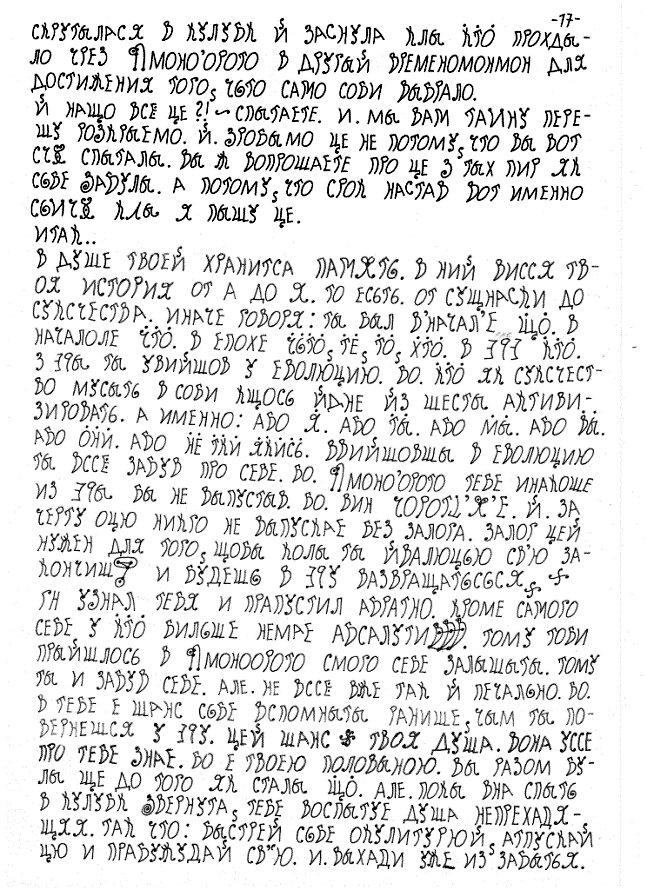 -17-
СКРУТЫЛАСЯ В КУЛУБК Й ЗАСНУЛА КЛЫ КТО ПРОХДЫ-
ЛО ЧРЕЗ МОНО'ОРОТО В ДРУГЫЙ ВРЕМЕНОМОНМОН ДЛЯ
ДОСТИЖЕНИЯ ТОГО, ЧЬТО САМО СОБИ ВЫБРАЛО.
Й НАЩО ВСЁ ЦЕ?! ~ СПЫТАЕТЕ. И. МЫ ВАМ ТАИНУ ПЕРЕ-
ШУ РОЗКРЫЕМО. Й. ЗРОБЫМО ЦЕ НЕ ПОТОМУ, ЧТО ВЫ ВОТ
СПЫТАЛЫ. ВЫ Ж ВОПРОШАЕТЕ ПРО ЦЕ З ТЫХ ПИР ЯК
СЕБЕ ЗАБУЛЫ. А ПОТОМУ, ЧТО СРОК НАСТАВ ВОТ ИМЕННО
КЛЫ Я ПЫШУ ЦЕ.
ИТАК..
В ДУШЕ ТВОЕЙ ХРАНИТСА ПАМЯТЬ. В НИЙ ВИССЯ ТВ-
ОЯ ИСТОРИЯ ОТ А ДО Я. ТО ЕСЬТЬ. ОТ СУЩНАСТИ ДО
СУКСЧЕСТВА. ИНАЧЕ ГОВОРЯ: ТЫ БЫЛ В'НАЧАЛ'Е ЩО. В
НАЧАЛОЛЕ ЧТО. В ЕПОХЕ ЧЁТО, ТЕ, ТО, ХТО. В КТО.
З ТЫ УВИЙШОВ У ЕВОЛЮЦИЮ. БО. КТО ЯК СУКСЧЕСТ-
ВО МУСЫТЬ В СОБИ КЩОСЬ ЙАНЕ ЙЗ ШЕСТЫ АКТИВИ-
ЗИРОВАТЬ. А ИМЕННО: АБО Я. АБО ТЫ. АБО МЫ. АБО ВЫ.
АБО ОНЙ. АБО НЕ ТКЙ ЯКЙСЬ. ВВИЙШОВШЫ В ЕВОЛЮЦИЮ
ТЫ ВССЁ ЗАБУВ ПРО СЕБЕ. БО. МОНО'ОРОТО ТЕБЕ ИНАКОШЕ
ИЗ ВЫ НЕ ВЫПУСТЫВ. БО. ВИН Й. ЗА
ЧЕРТУ ОЦЮ НИКТО НЕ ВЫПУСКАЕ БЕЗ ЗАЛОГА. ЗАЛОГ ЦЕЙ
НУЖЕН ДЛЯ ТОГО, ЩОБЫ КОЛЫ ТЫ ЙВАЛЮЦЬЮ СВ'Ю ЗА-
КОНЧИШ И БУДЕШЬ В ВАЗВРАЩАТЬСЬСЯ,
ГН УЗНАЛ ТЕБЯ И ПРАПУСТИЛ АБРАТНО. КРОМЕ САМОГО
СЕБЕ У КТО БИЛЬШЕ НЕМАЕ АБСАЛУТИ. ТОМУ ТОБИ
ПРЫЙШЛОСЬ В МОНООРОТО СМОГО СЕБЕ ЗАЛЫШЫТЫ. ТОМУ
ТЫ И ЗАБУВ СЕБЕ. АЛЕ. НЕ ВССЁ ВЖЕ ТАК Й ПЕЧАЛЬНО. БО.
В ТЕБЕ Е ШАНС СЕБЕ ВСПОМНЫТЫ РАНИШЕ, ЧЫМ ТЫ ПО-
ВЕРНЕШСЯ У ЦЕЙ ШАНС ТВОЯ ДУША. ВОНА УССЕ
ПРО ТЕБЕ ЗНАЕ. БО Е ТВОЕЮ ПОЛОВЫНОЮ. ВЫ РАЗОМ БУ-
ЛЫ ЩЕ ДО ТОГО ЯК СТАЛЫ ЩО. АЛЕ. ПОКЫ ВНА СПЫТЬ
В КУЛУБК ЗВЕРНУТА, ТЕБЕ ВОСПЫТУЕ ДУША НЕПРЕХАДЯ-
ЩАЯ. ТАК ЧТО: БЫСТРЕЙ СЕБЕ ОКУЛИТУРЮЙ, АТПУСКАЙ
ЦЮ И ПРАБУЖУДАЙ СВ"Ю. И. ВЫХАДИ УЖЕ ИЗ ЗАБЫТЬЯ.